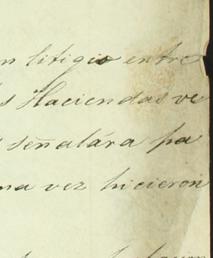 n litigio entre
s Haciendas ve
señalára pa
na vez hicieron